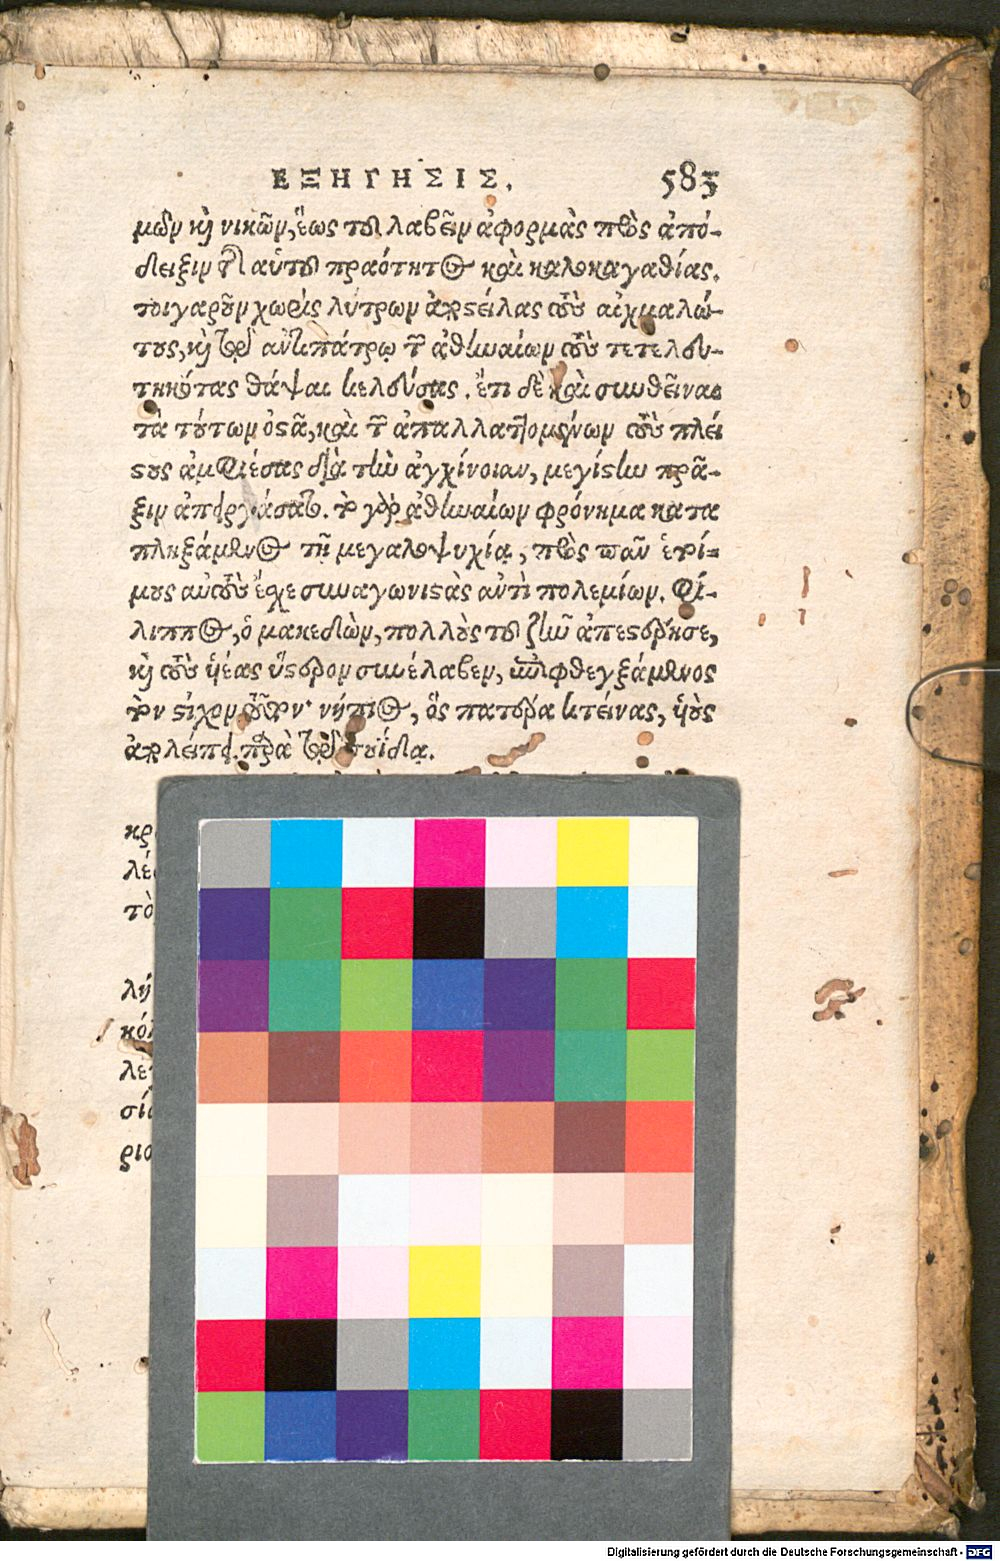 ΕΞΗΓΗΣΙΣ. 583
μῶν κὶ νικῶν, ἕως τοῦ λαβεῖν ἀφορμὰς πρὸς ἀπό-
δειξιν τῆς αὐτοῦ πραότητος καὶ καλοκαγαθίας.
τοιγαροῦν χωρὶς λύτρων ἀποστείλας τοὺς αἰχμαλώ-
τους, κὶ τῷ ἀντιπάτρῳ τῶν ἀθηναίων τοὺς τετελευ-
τηκότας θάψαι κελεύσας. ἔτι δὲ καὶ συνθεῖναι
τὰ τούτων ὀστᾶ, καὶ τῶν ἀπαλλαττομένων τοὺς πλεί
στους ἀμφιέσας διὰ τὴν ἀγχίνοιαν, μεγίστην πρᾶ-
ξιν ἀπειργάσατο. τὸ γὰρ ἀθηναίων φρόνημα κατα
πληξάμενος τῇ μεγαλοψυχίᾳ, πρὸς πᾶν ἑτοί-
μους αὐτοὺς ἔσχε συναγωνιστὰς ἀντὶ πολεμίων. Φί-
λιππος, ὁ μακεδὼν, πολλοὺς τοῦ ζῆν ἀπεστέρησε,
κὶ τοὺς υἱέας ὕστερον συνέλαβεν, ἀποφθεγξάμενος
τὸν στίχον τοῦτον· νήπιος, ὃς πατέρα κτείνας, υἱοὺς
ἀπολείπει. παρὰ τῷ σουίδᾳ.
λέ
τὸ
λή
κό
λε
σία
ρισ
Digitalisierung gefördert durch die Deutsche Forschungsgemeinschaft - DFG